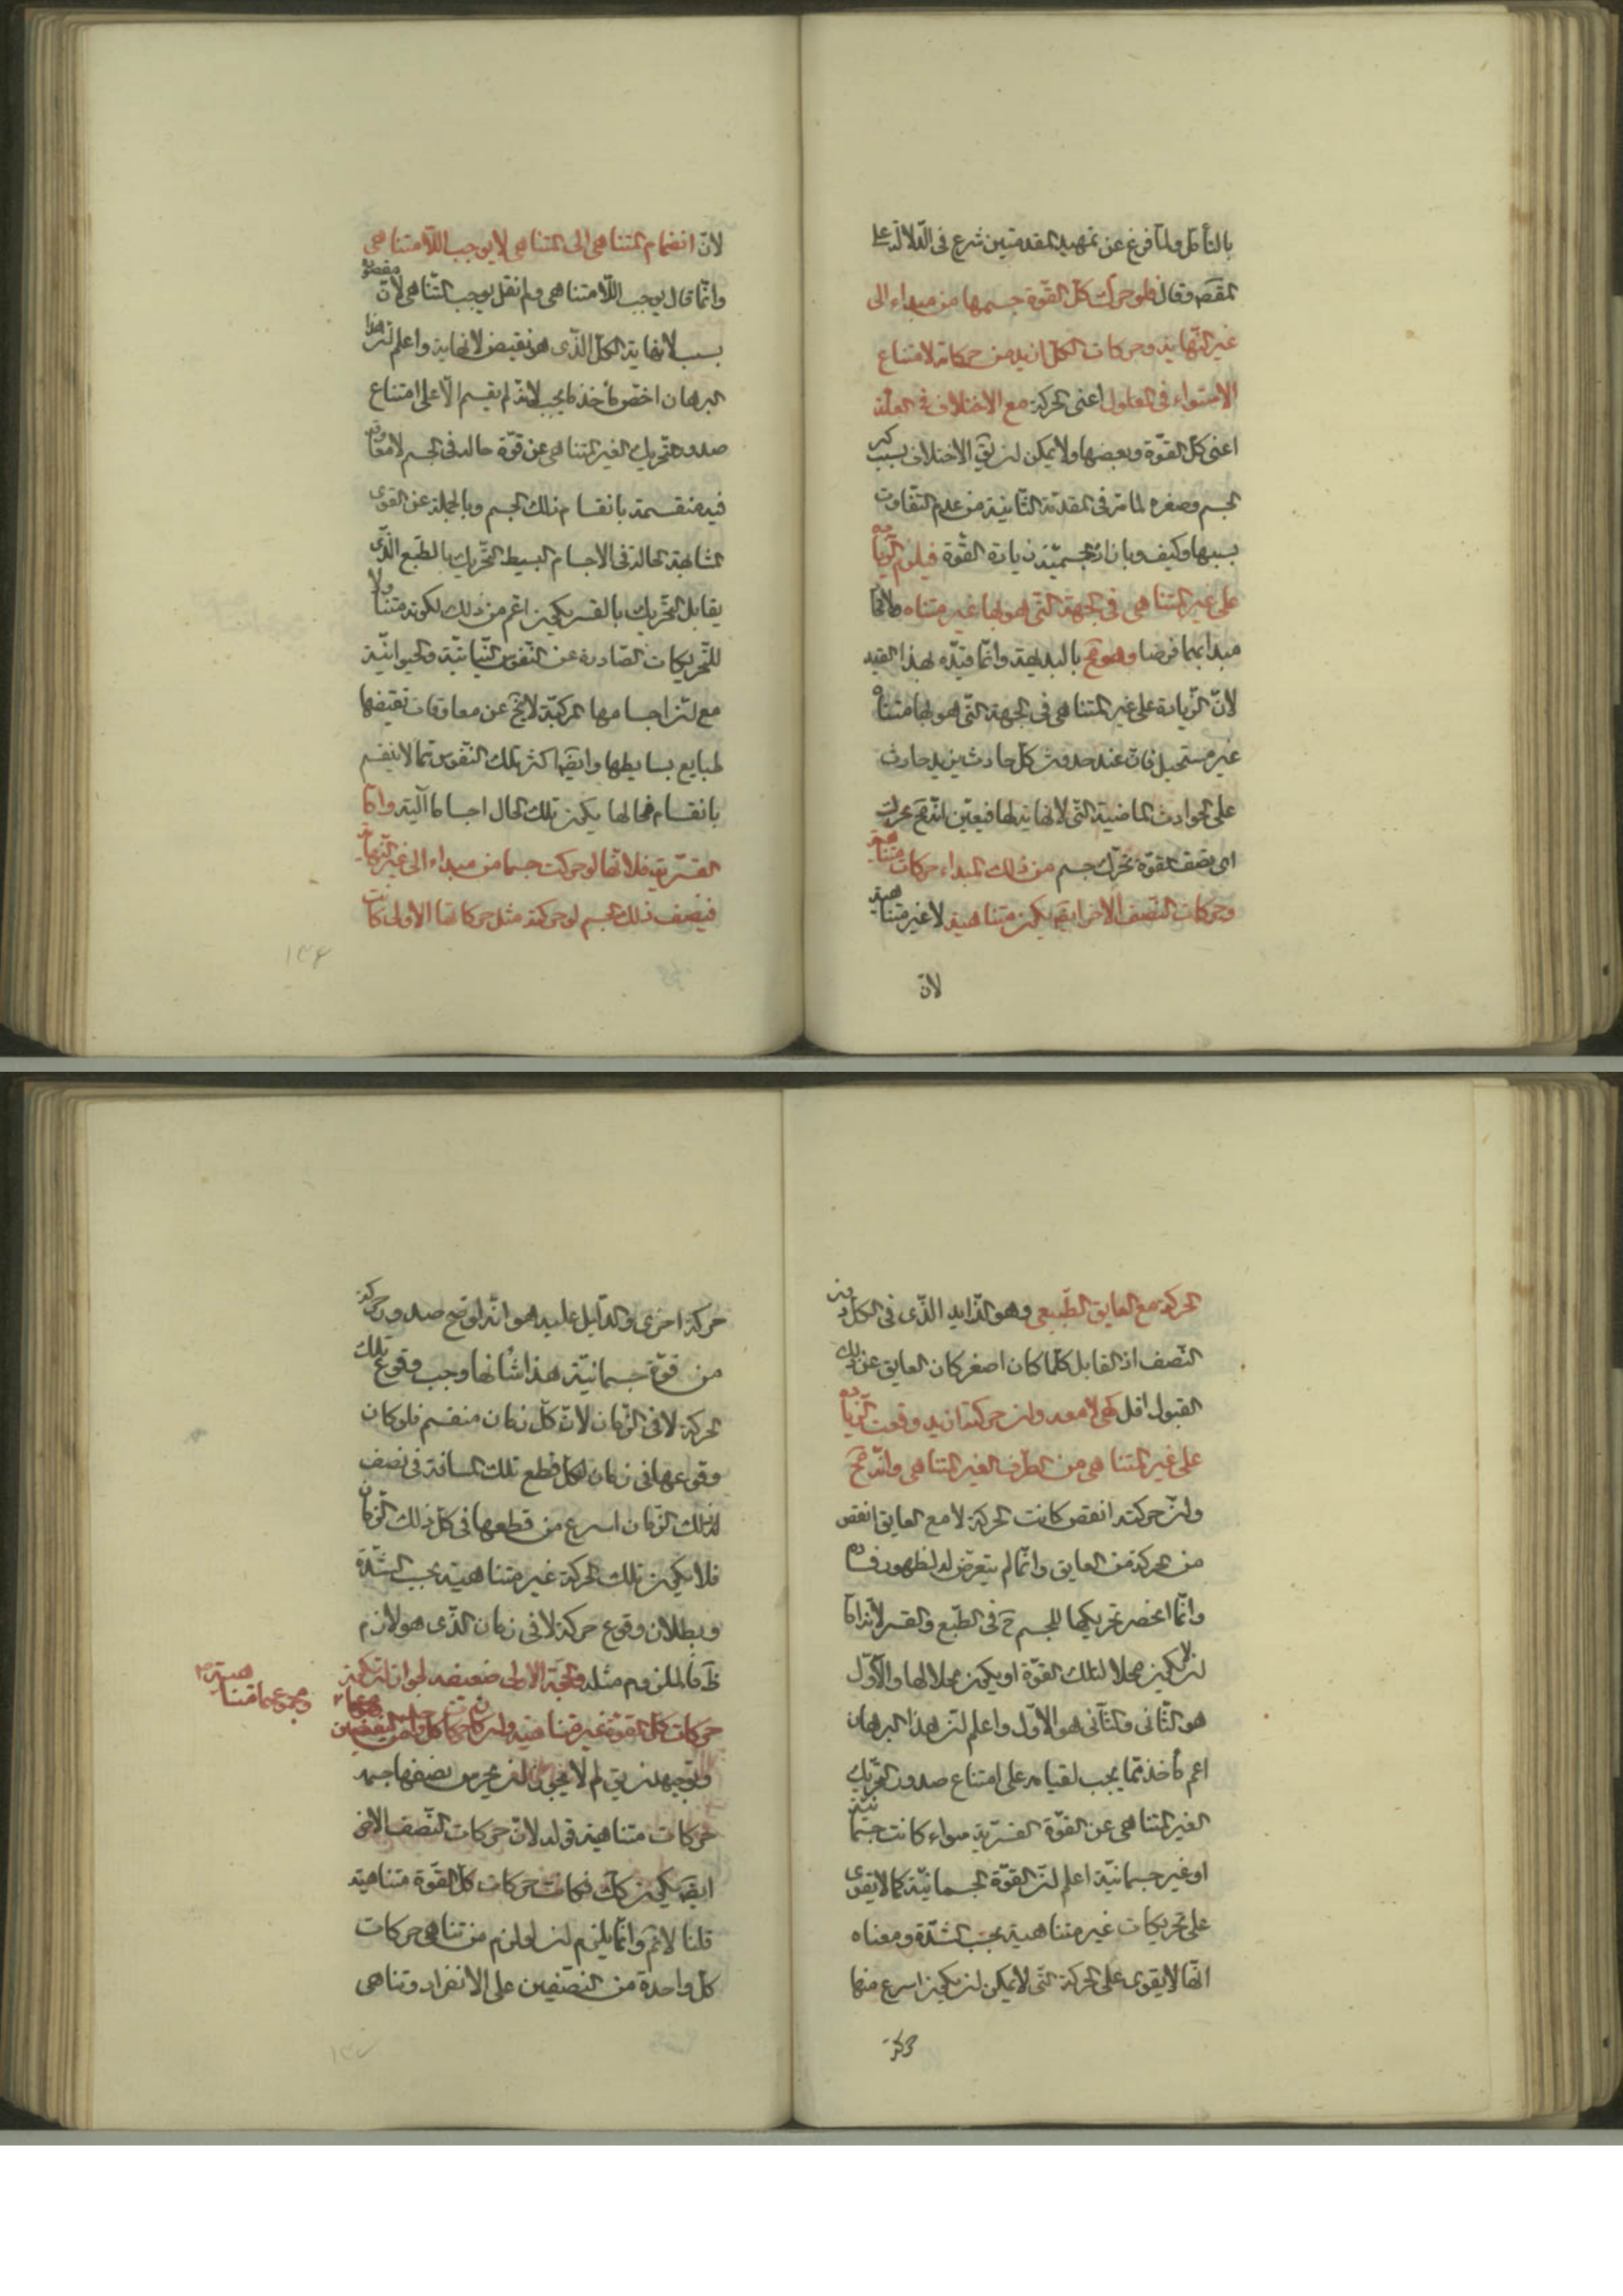 بالتأمل ولما فرغ عن تمهيد المقدمتين شرع فى الدلالة على
المقصَ وقال فلو حركت كل القوة جسمها من مبداء الى
غير النهاية وحركات الكل ازيد من حركاته لامتناع
الاستواء فى المعلول اعنى الحركة مع الاختلاف فى العلة
اعنى كل القوة وبعضها ولا يمكن ان يقَ الاختلاف بسبب كبر
الجسم وصغره لما مر فى المقدمة الثانية من عدم التفاوت
بسببها وكيف وبازاء الجسمية زيادة القوة فيلزم الزيادة
على غير المتناهى فى الجهة التى هو لها غير متناه
مبدائهما فرضا وهو مح بالبديهة وانما قيده بهذا القيد
لان الزيادة على غير المتناهى فى الجهة التى هو لها متناه
غير مستحيل فان عند حدوث كل حادث يزيد حادث
على الحوادث الماضية التى لا نهاية لها فيعين انه مح تحرك
اى نصف القوة تحرك جسم من ذلك المبداء حركات متناهية
وحركات النصف الاخر ايضَ يكون متناهية لا غير متناهية
لان
لان انضمام المتناهى الى المتناهى لا يوجب اللامتناهى
وانما قال يوجب اللامتناهى ولم نقل يوجب التناهى لان مقصوده
بسبب لا نهاية الكل الذى هو نقيض لا نهاية واعلم ان هذا
البرهان اخص مأخذ مما يجب لانه لم يقسم الا على امتناع
صدور التحريك الغير المتناهى عن قوة حالة فى الجسم لا معاوقة
فيه منقسمة بانقسام ذلك الجسم وبالجملة عن القوى
المشابهة الحالة فى الاجسام البسيط التحريك بالطبع الذى
يقابل التحريك بالقسر يكون اعم من ذلك لكونه متناولا
للتحريكات الصادرة عن النفوس النباتية والحيوانية
مع ان اجسامها المركبة لا يخ عن معاوقات تقتضيها
طبايع بسايطها وايضا اكثر تلك النفوس مما لا ينقسم
بانقسام محالها يكون تلك المحال اجساما آلية واما
القسرية فلانها لو حركت جسما من مبداء الى غير النهاية
فنصف ذلك الجسم لو حركته مثل حركاتها الاولى كانت
١٣۶
الحركة مع العايق الطبيعى وهو الزايد الذى فى الكل دون
النصف اذ القابل كلما كان اصغر كان العايق عن ذلك
القبول اقل كهى لا معه وان حركته ازيد وقعت الزيادة
على غير المتناهى من الطرف الغير المتناهى وانه مح
وان حركته انقص كانت الحركة لا مع العايق انقص
من الحركة مع العايق وانما لم يتعرض له لظهور فساده
وانما انحصر تحريكها للجسم ح فى الطبع والقسر لانه اما
ان لا يكون محلا لتلك القوة او يكون محلا لها والاول
هو الثانى والثانى هو الاول واعلم ان هذا البرهان
اعم مأخذ مما يجب لقيامه على امتناع صدور التحريك
الغير المتناهى عن القوة القسرية سواء كانت جسمانية
او غير جسمانية اعلم ان القوة الجسمانية كما لا يقوى
على تحريكات غير متناهية بحسب الشدة ومعناه
انها لا يقوى على الحركة التى لا يمكن ان يكون اسرع منها
حركة
حركة اخرى والدليل عليه هو انه لو صح صدور حركة
من قوة جسمانية هذا شأنها وجب وقوع تلك
الحركة لا فى الزمان لان كل زمان منقسم فلو كان
وقوعها فى زمان لكان قطع تلك المسافة فى نصف
ذلك الزمان اسرع من قطعها فى كل ذلك الزمان
فلا يكون تلك الحركة غير متناهية بحسب الشدة
وبطلان وقوع حركة لا فى زمان الذى هو لازم
ظَ فالملزوم مثله والحجة الاولى ضعيفة لجواز ان يكون
حركات كل القوة غير متناهية وان كان حركات كل واحد من النصفين
ومجموعها متناهية
وتوجيهه ان يقَ لم لا يجوز ان يحرك نصفها جسمه
حركات متناهية قوله لان حركات النصف الاخر
ايضَ يكون كك فكانت حركات كل القوة متناهية
قلنا لانم وانما يلزم ان لو لزم من تناهى حركات
كل واحدة من النصفين على الانفراد وتناهى